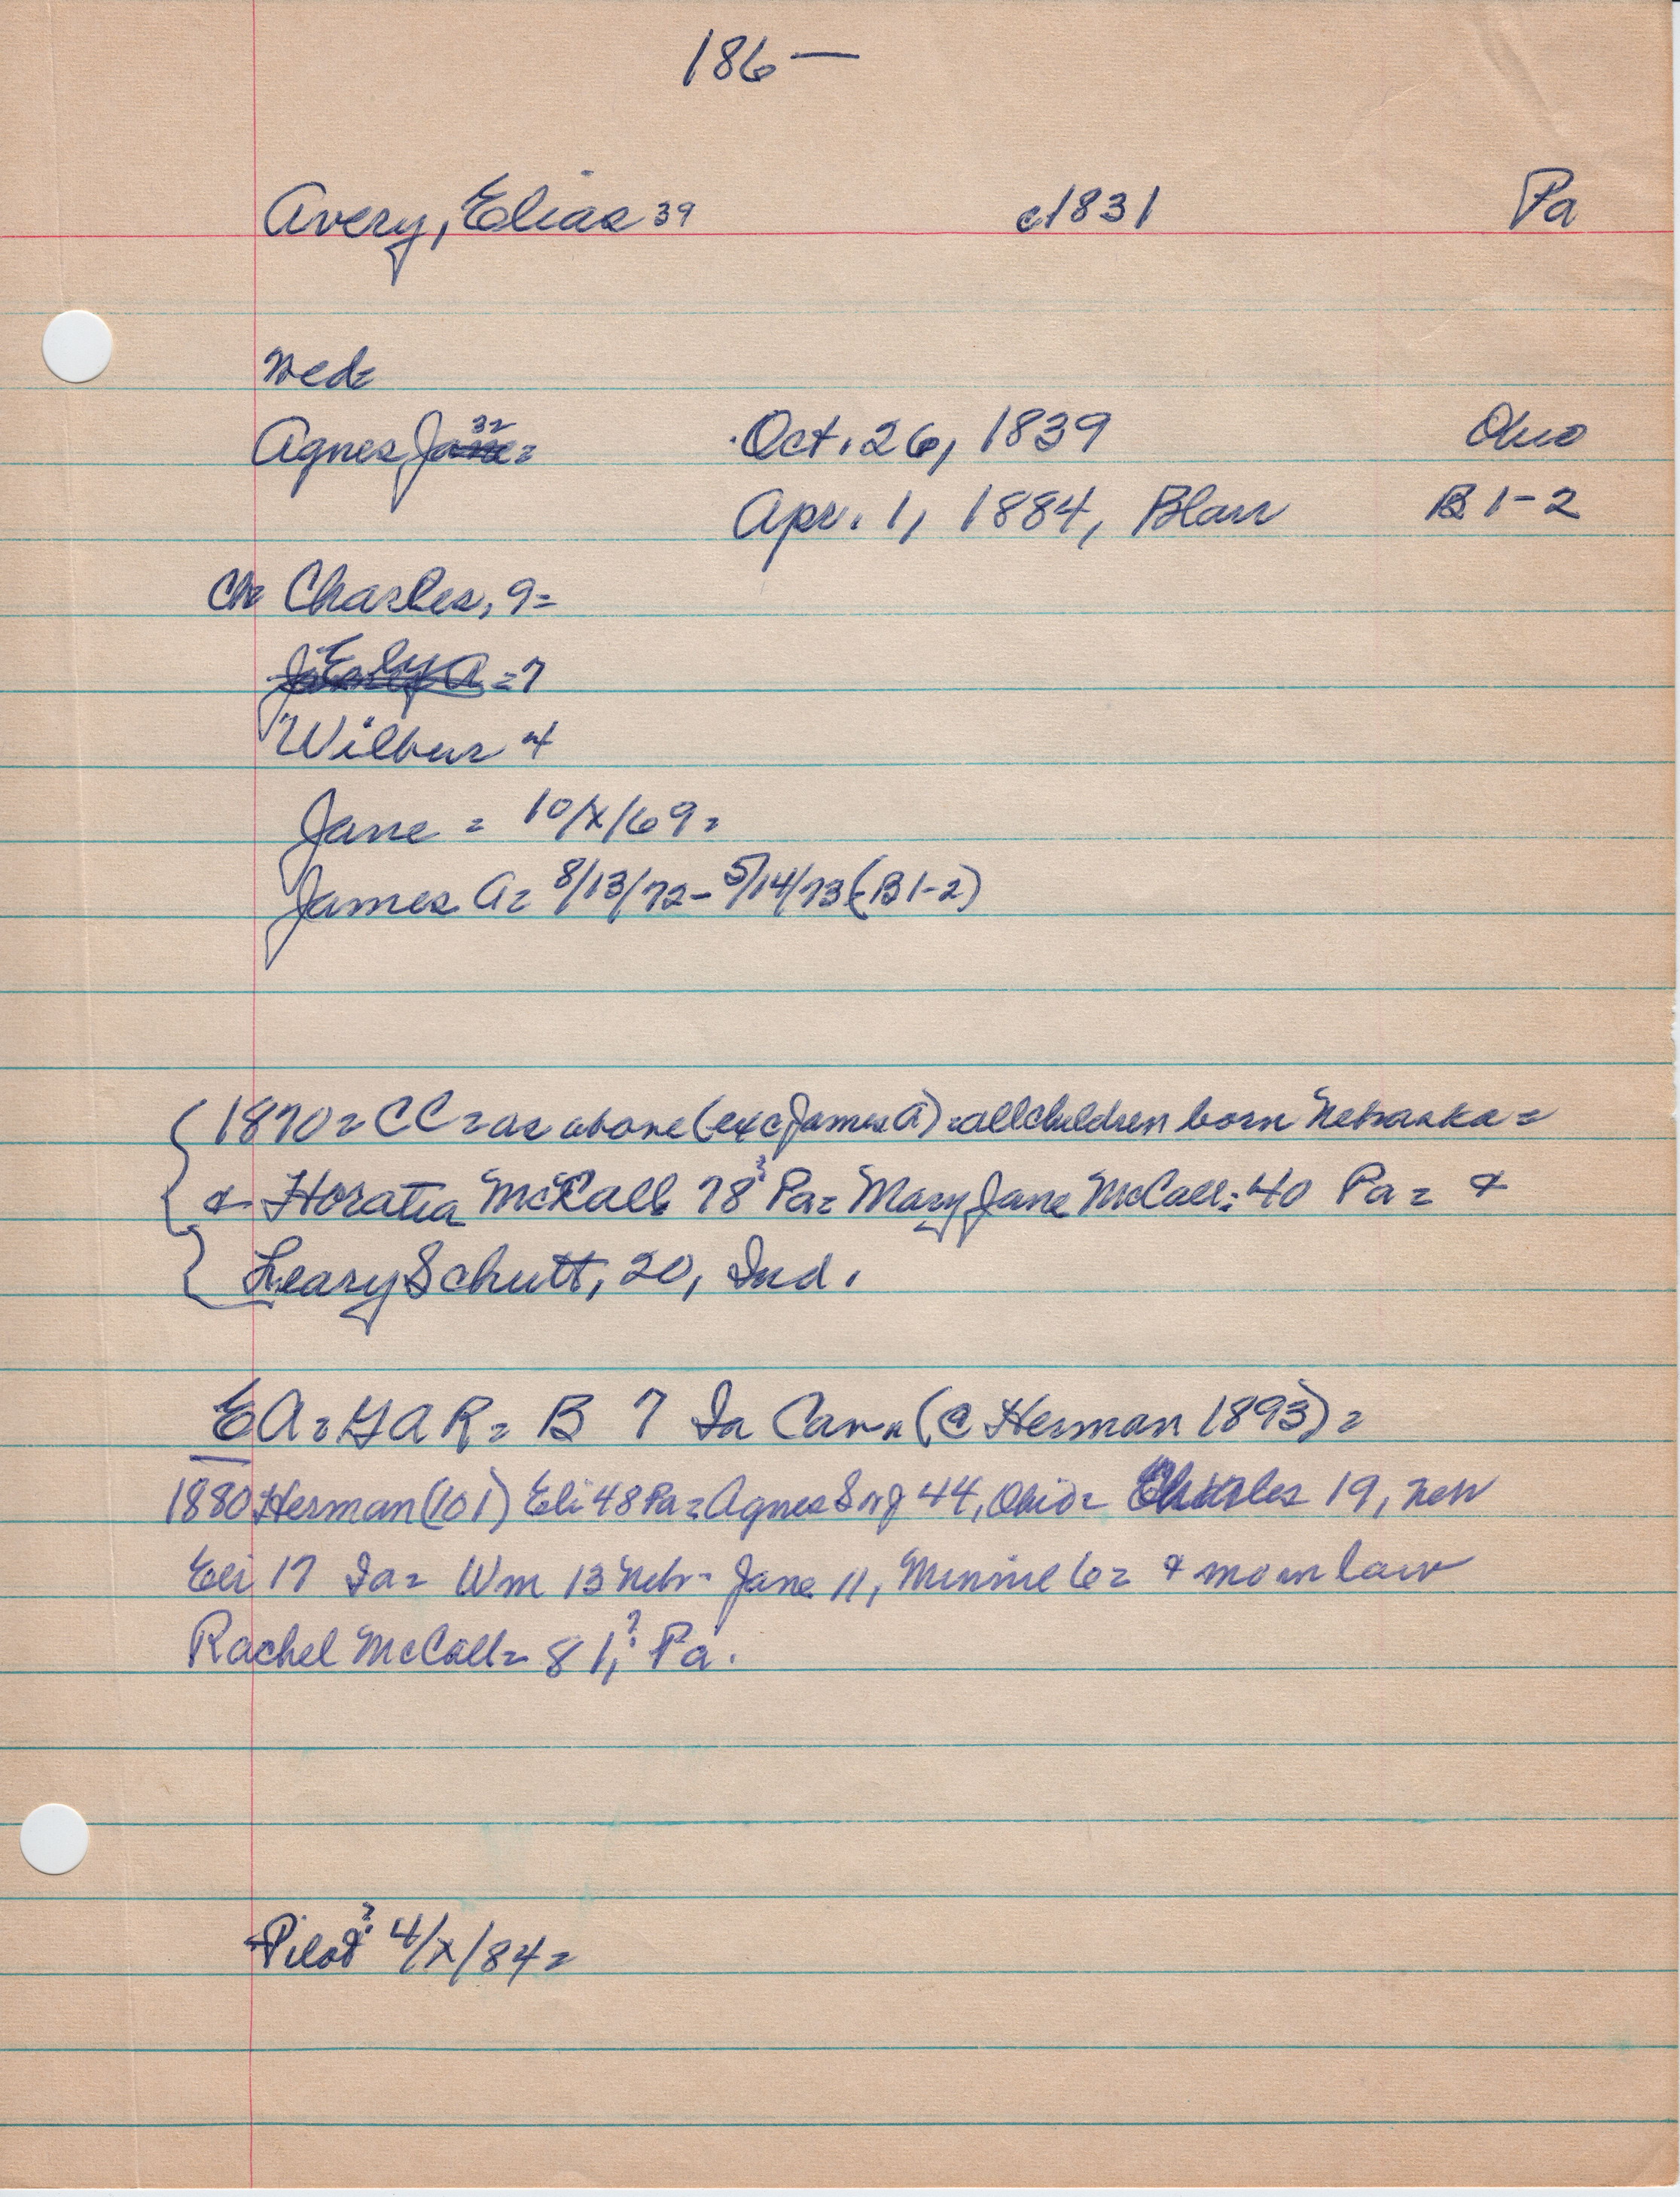 186—
Avery, Elias 39 c1831 Pa
Wed=
Agnes Jane= 32 Oct. 26, 1839 Ohio
Apr. 1, 1884, Blair B 1-2
Ch= Charles, 9=
Ely A =7
Wilbur 4
Jane = 10/x/69=
James A= 8/13/72- 5/14/73 (B 1-2)
1870= CC= as above (exc James A) =all children born Nebraska=
& Horatia McCall 78? Pa= Mary Jane McCall= 40 Pa= &
Leary Schutt, 20, Ind.
EA= GAR= B 7 Ia Cav= (@ Herman 1893)=
1880 Herman (101) Eli 48 Pa= Agnes 44, Ohio= Charles 19, Neb
Eli 17 Ia= Wm 13 Nebr- Jane 11, Minnie 6= & mo in law
Rachel McCall= 81,? Pa.
Pilot? 4/x/84=